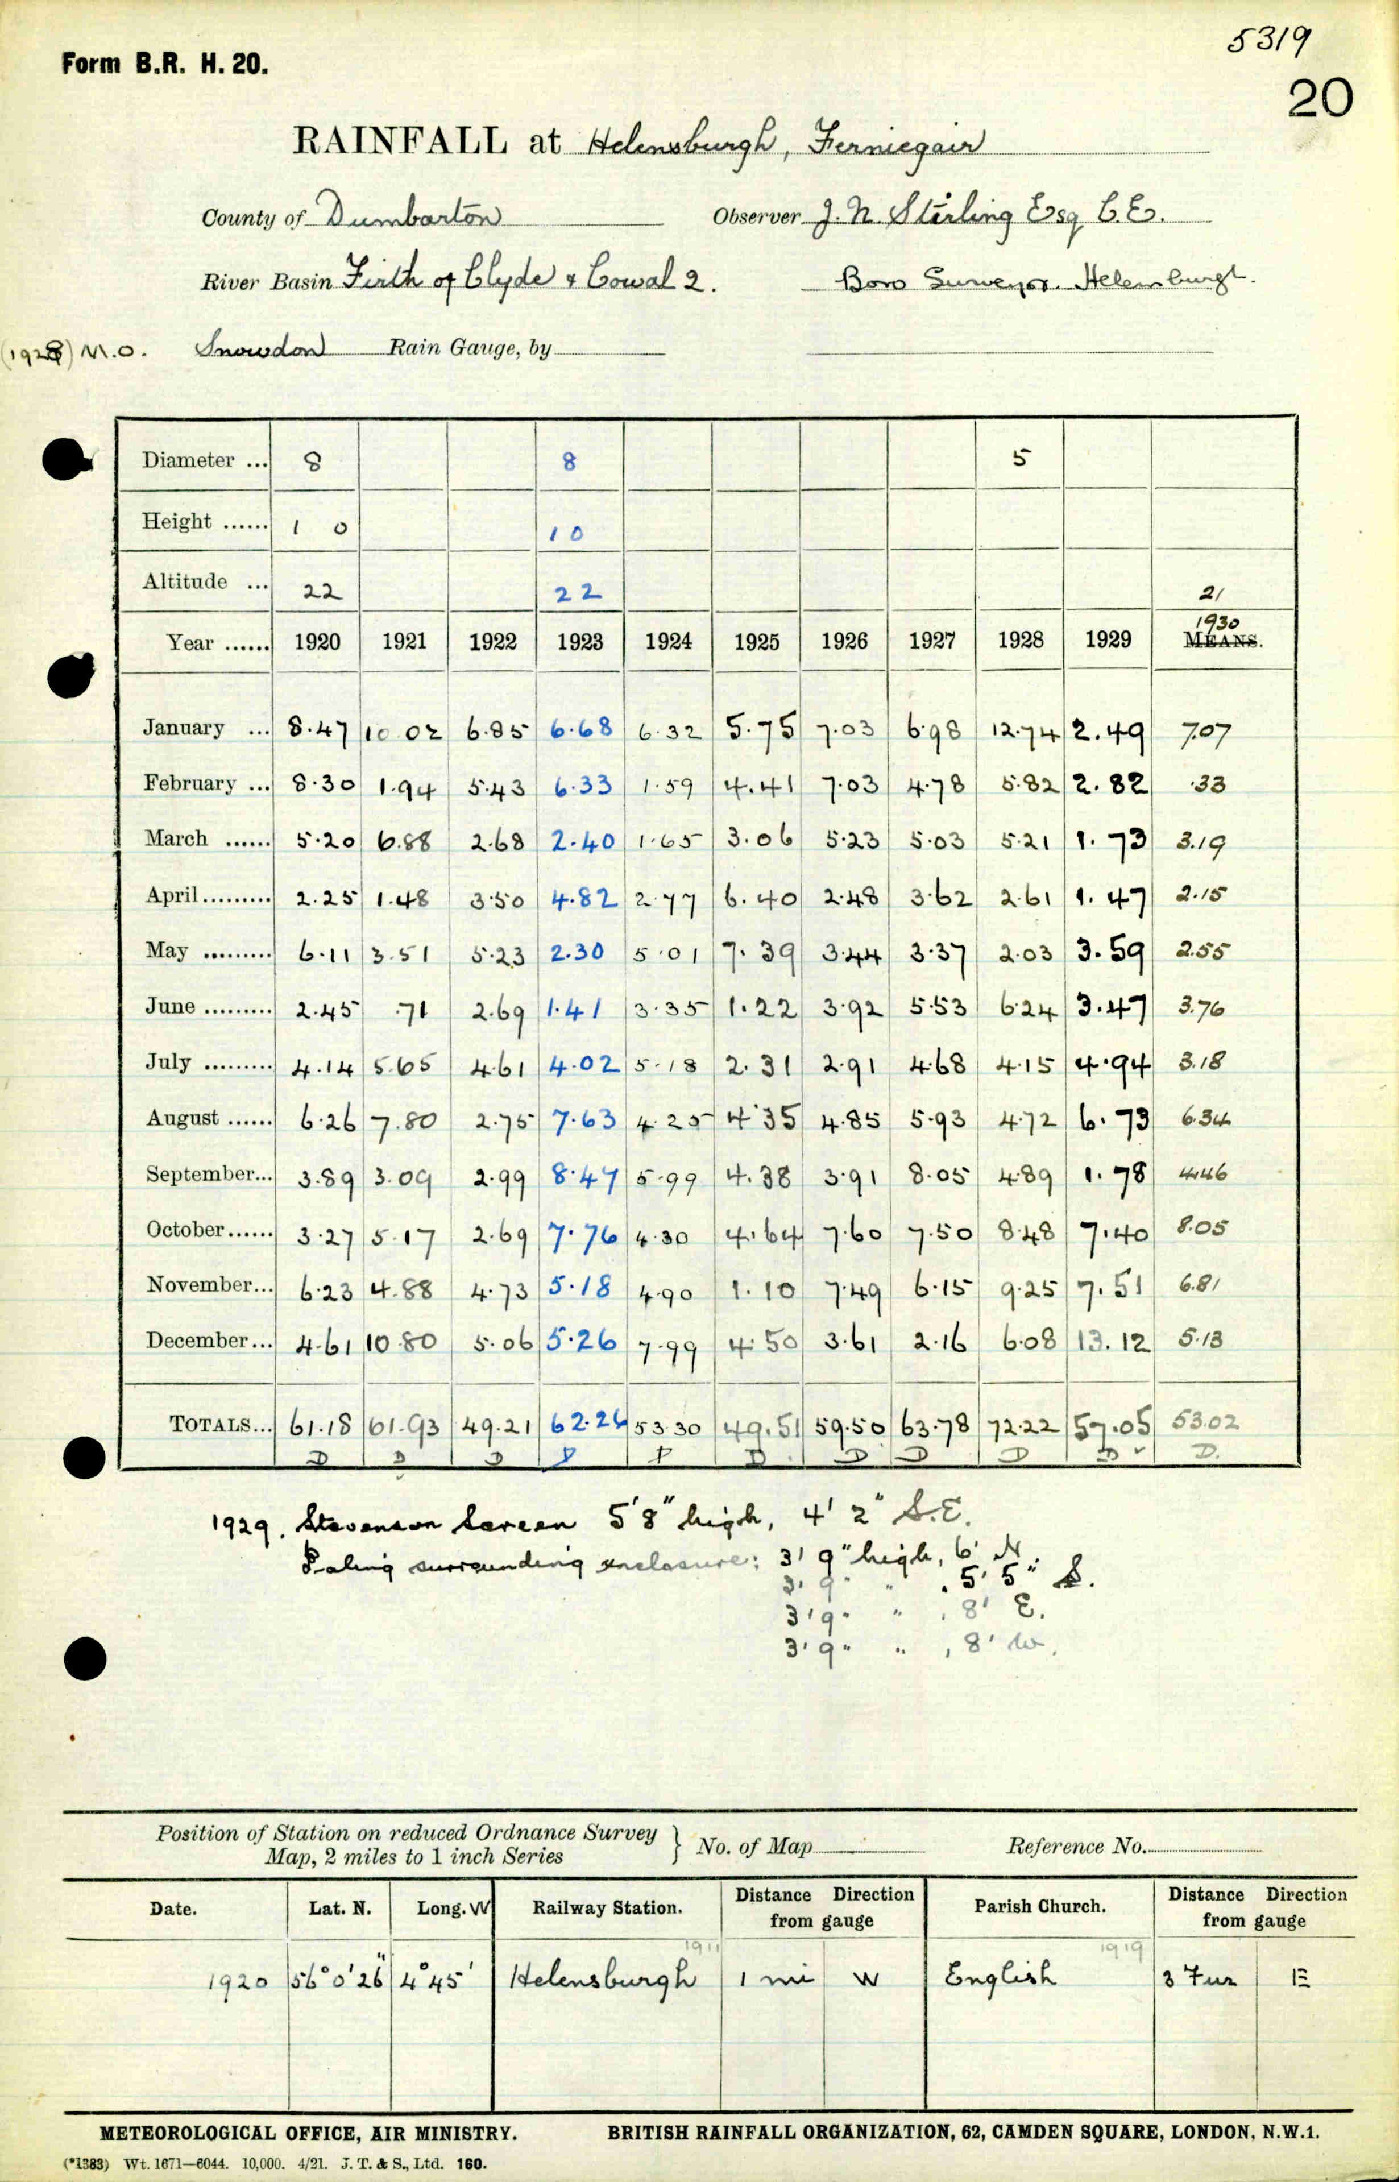 5319
Form B.R. H. 20.
20
RAINFALL at Helensburgh, Ferniegair
County of Dumbarton Observer J. N. Stirling Esq C.E.
River Basin Firth of Clyde & Cowal 2. Boro Surveyor. Helensburgh.
M.O. Snowdon Rain Gauge, by
Diameter ... 8 8 5
Height ...... 1 0 10
Altitude ... 22 22 21
Year ...... 1920 1921 1922 1923 1924 1925 1926 1927 1928 1929 1930 MEANS.
January ... 8.47 10.02 6.85 6.68 6.32 5.75 7.03 6.98 12.74 2.49 7.07
February ... 8.30 1.94 5.43 6.33 1.59 4.41 7.03 4.78 5.82 2.82 .33
March ...... 5.20 6.88 2.68 2.40 1.65 3.06 5.23 5.03 5.21 1.73 3.19
April ......... 2.25 1.48 3.50 4.82 2.77 6.40 2.48 3.62 2.61 1.47 2.15
May ......... 6.11 3.51 5.23 2.30 5.01 7.39 3.44 3.37 2.03 3.59 2.55
June ......... 2.45 .71 2.69 1.41 3.35 1.22 3.92 5.53 6.24 3.47 3.76
July ......... 4.14 5.65 4.61 4.02 5.18 2.31 2.91 4.68 4.15 4.94 3.18
August ...... 6.26 7.80 2.75 7.63 4.25 4.35 4.85 5.93 4.72 6.73 6.34
September... 3.89 3.09 2.99 8.47 5.99 4.38 3.91 8.05 4.89 1.78 4.46
October...... 3.27 5.17 2.69 7.76 4.30 4.64 7.60 7.50 8.48 7.40 8.05
November... 6.23 4.88 4.73 5.18 4.90 1.10 7.49 6.15 9.25 7.51 6.81
December... 4.61 10.80 5.06 5.26 7.99 4.50 3.61 2.16 6.08 13.12 5.13
TOTALS... 61.18 61.93 49.21 62.26 53.30 49.51 59.50 63.78 72.22 57.05 53.02
D D D D D D D D D D ✓ D.
1929. Stevenson Screen 5'8" high, 4' 2" S.E.
Paling surrounding enclosure: 3' 9" high, 6' N.
3' 9" " , 5' 5" S.
3' 9" " , 8' E.
3' 9" " , 8' W.
Position of Station on reduced Ordnance Survey
Map, 2 miles to 1 inch Series } No. of Map Reference No.
Date. Lat. N. Long. W Railway Station. Distance Direction from gauge Parish Church. Distance Direction from gauge
1911 1919
1920 56° 0' 26" 4° 45' Helensburgh 1 mi W English 3 Fur E
METEOROLOGICAL OFFICE, AIR MINISTRY. BRITISH RAINFALL ORGANIZATION, 62, CAMDEN SQUARE, LONDON, N.W.1.
(*1383) Wt. 1671—6044. 10,000. 4/21. J. T. & S., Ltd. 160.